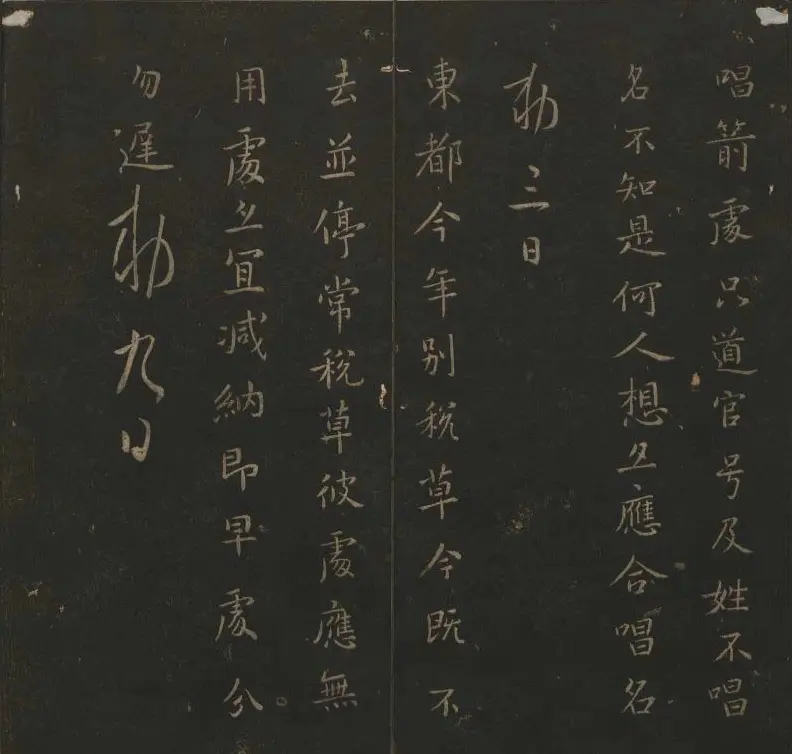 唱箭處只道官号及姓不唱
名不知是何人想亦應合唱名
勅三日
東都今年別税草今既不
去並停常税草彼處應無
用處亦宜减納即早處分
勿遲勅九日